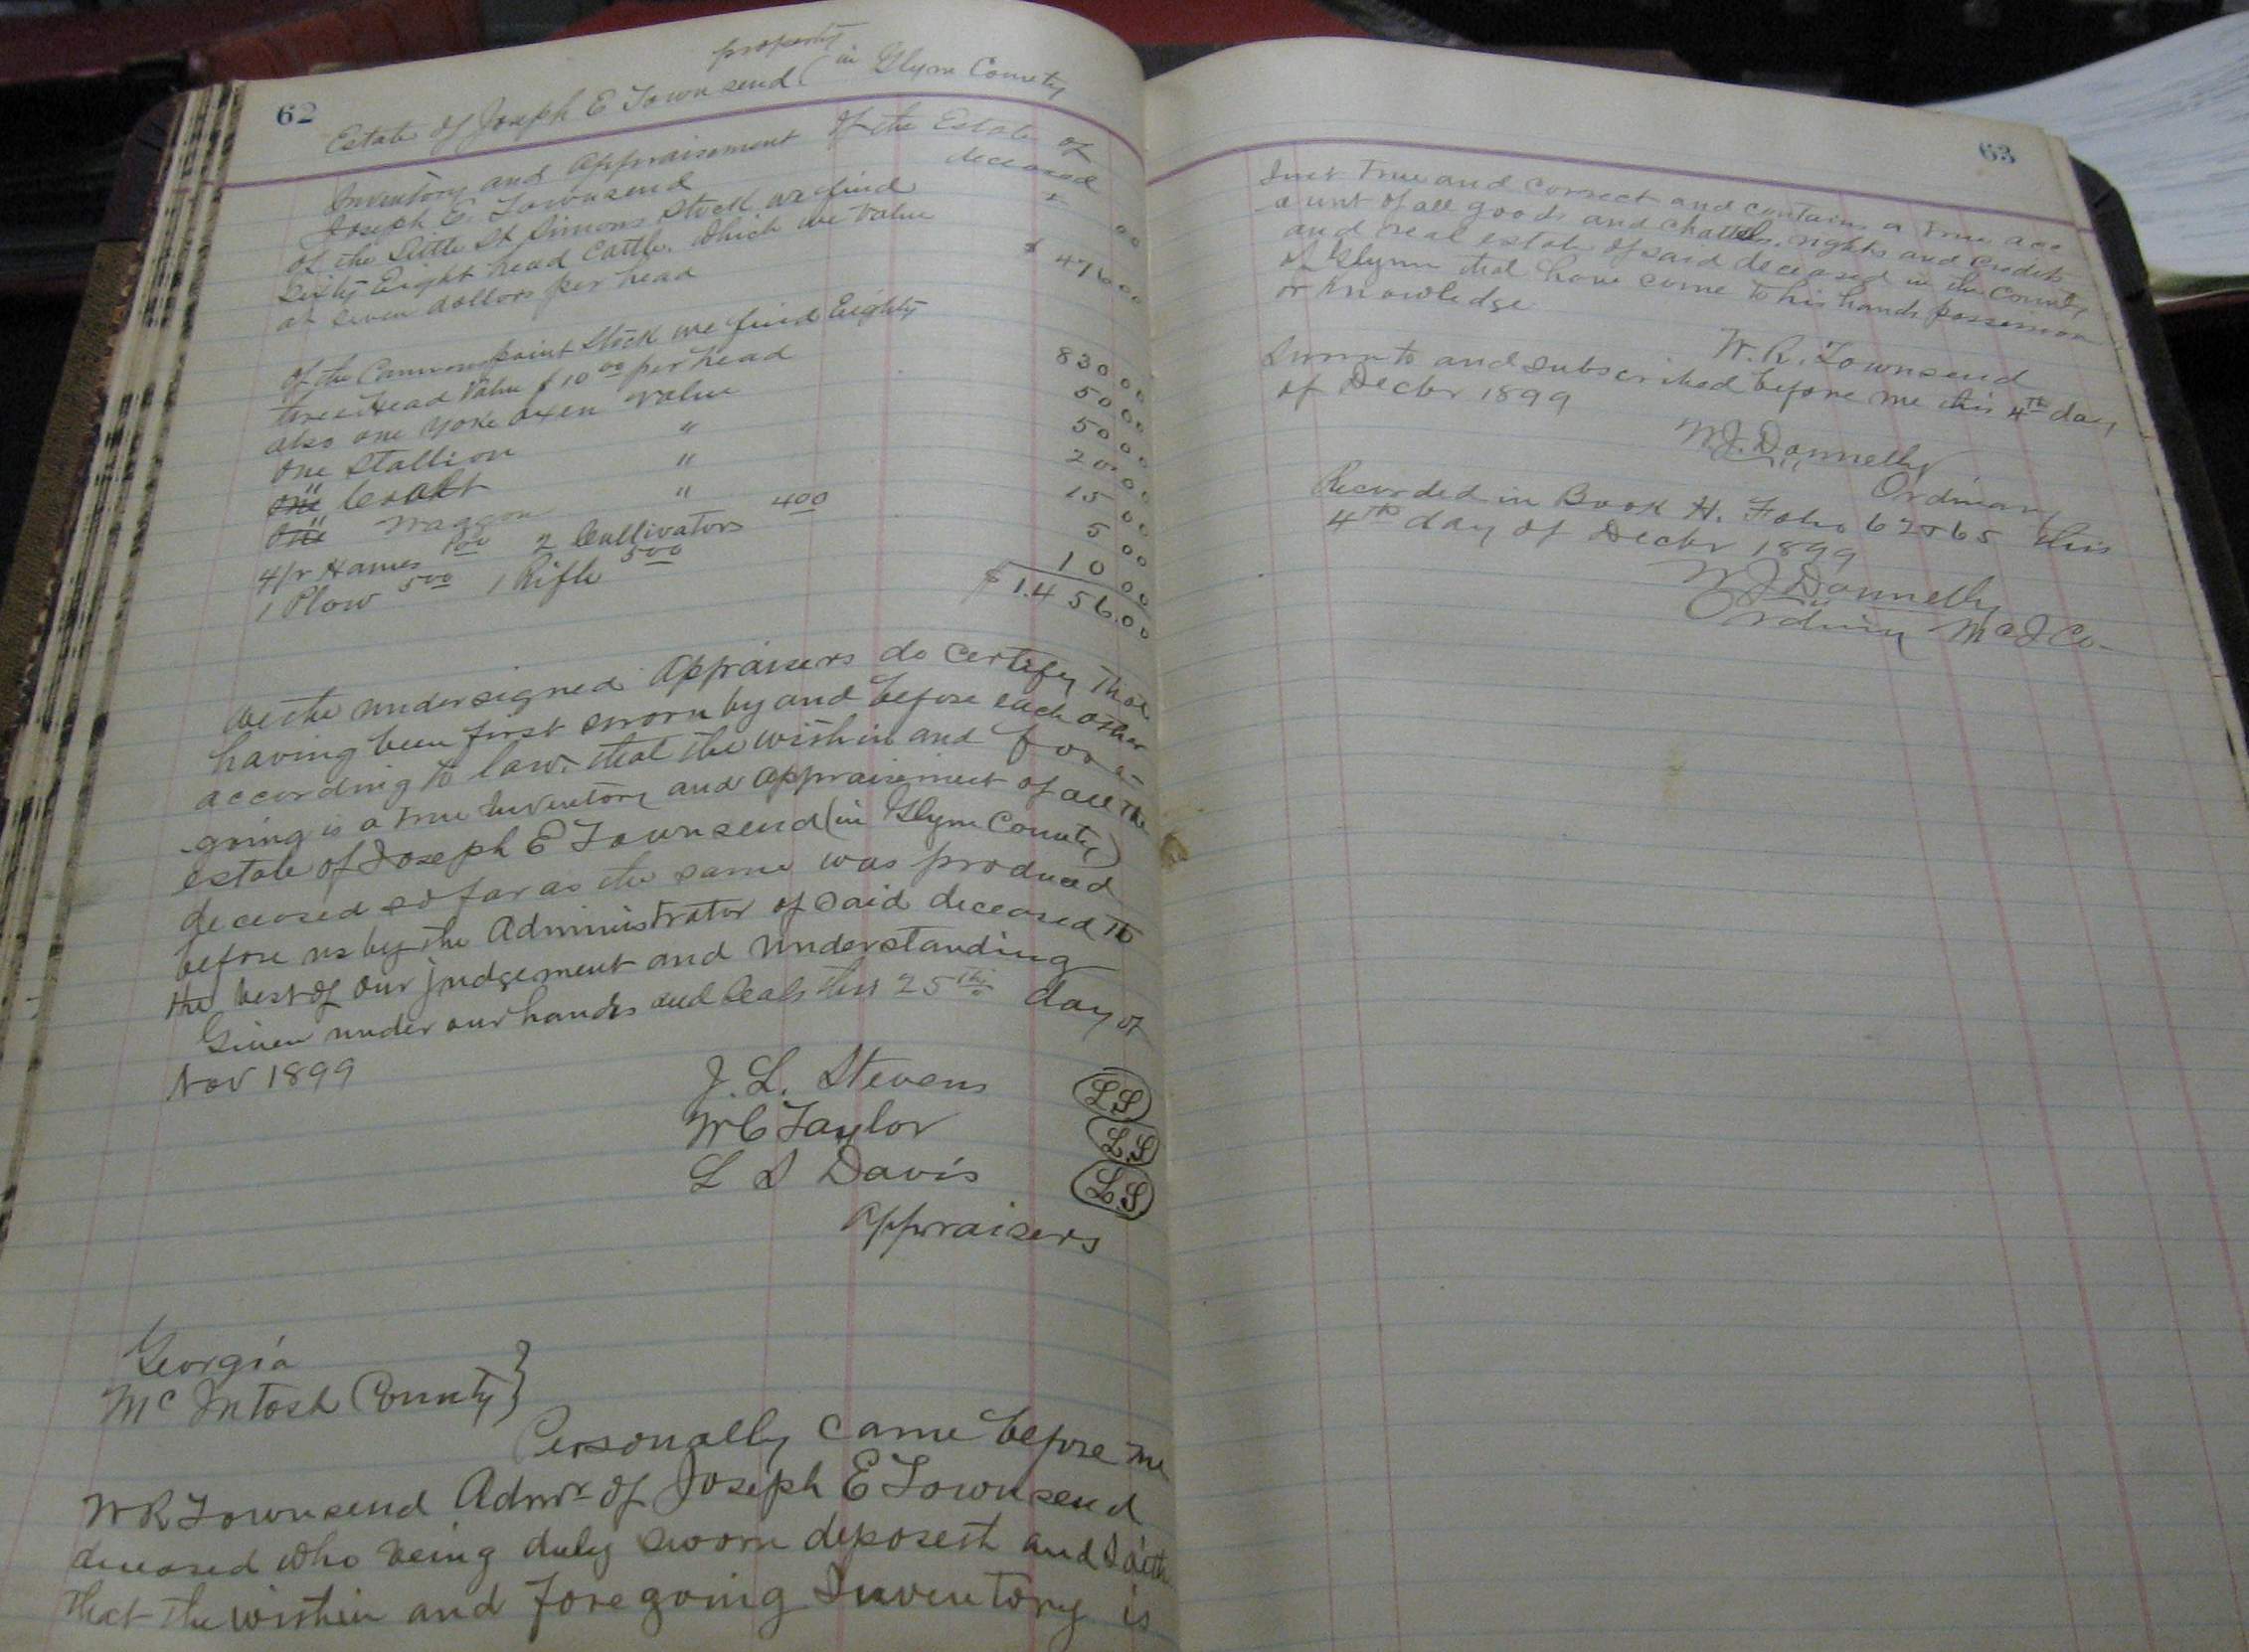 62
property
Estate of Joseph E Townsend (in Glynn County
Inventory and Appraisement of the Estate of
Joseph E. Townsend deceased
of the Little St Simons Stock we find
Sixty Eight head Cattle, which we value
at seven dollars per head $ 476 00
of the Cannons point Stock we find Eighty
three Head Value $10 00 per head 830 00
also one yoke oxen value 50 00
One Stallion " 50 00
" Coalt " 20 00
" Waggon " 15 00
4/r Hames 1 00 2 Cultivators 4 00 5 00
1 Plow 5 00 1 Rifle 5 00 10 00
$ 1.456.00
We the undersigned Appraisers do certify that
having been first sworn by and before each other
according to law, that the within and fore-
going is a true Inventory and appraisement of all the
estate of Joseph E Townsend (in Glynn County)
deceased so far as the same was produced
before us by the Administrator of said deceased to
the best of our judgement and understanding
Given under our hands and seals this 25th day of
Nov 1899
J. L. Stevens LS
W C Taylor L.S
L S Davis L.S
Appraisers
Georgia
Mc Intosh County }
Personally came before me
W R Townsend Admr of Joseph E Townsend
deceased who being duly sworn deposest and saith
that the within and foregoing Inventory is
63
Just True and correct and contains a true acc
ount of all goods and chattels, rights and credits
and real estate of said deceased in the County
of Glynn that have come to his hands possession
or knowledge
W. R. Townsend
Sworn to and subscribed before me this 4th day
of Decbr 1899
W.J. Donnelly
Ordinary
Recorded in Book H. Folio 62 & 65 this
4th day of Decbr 1899
W J Donnelly
Ordinary McI Co-